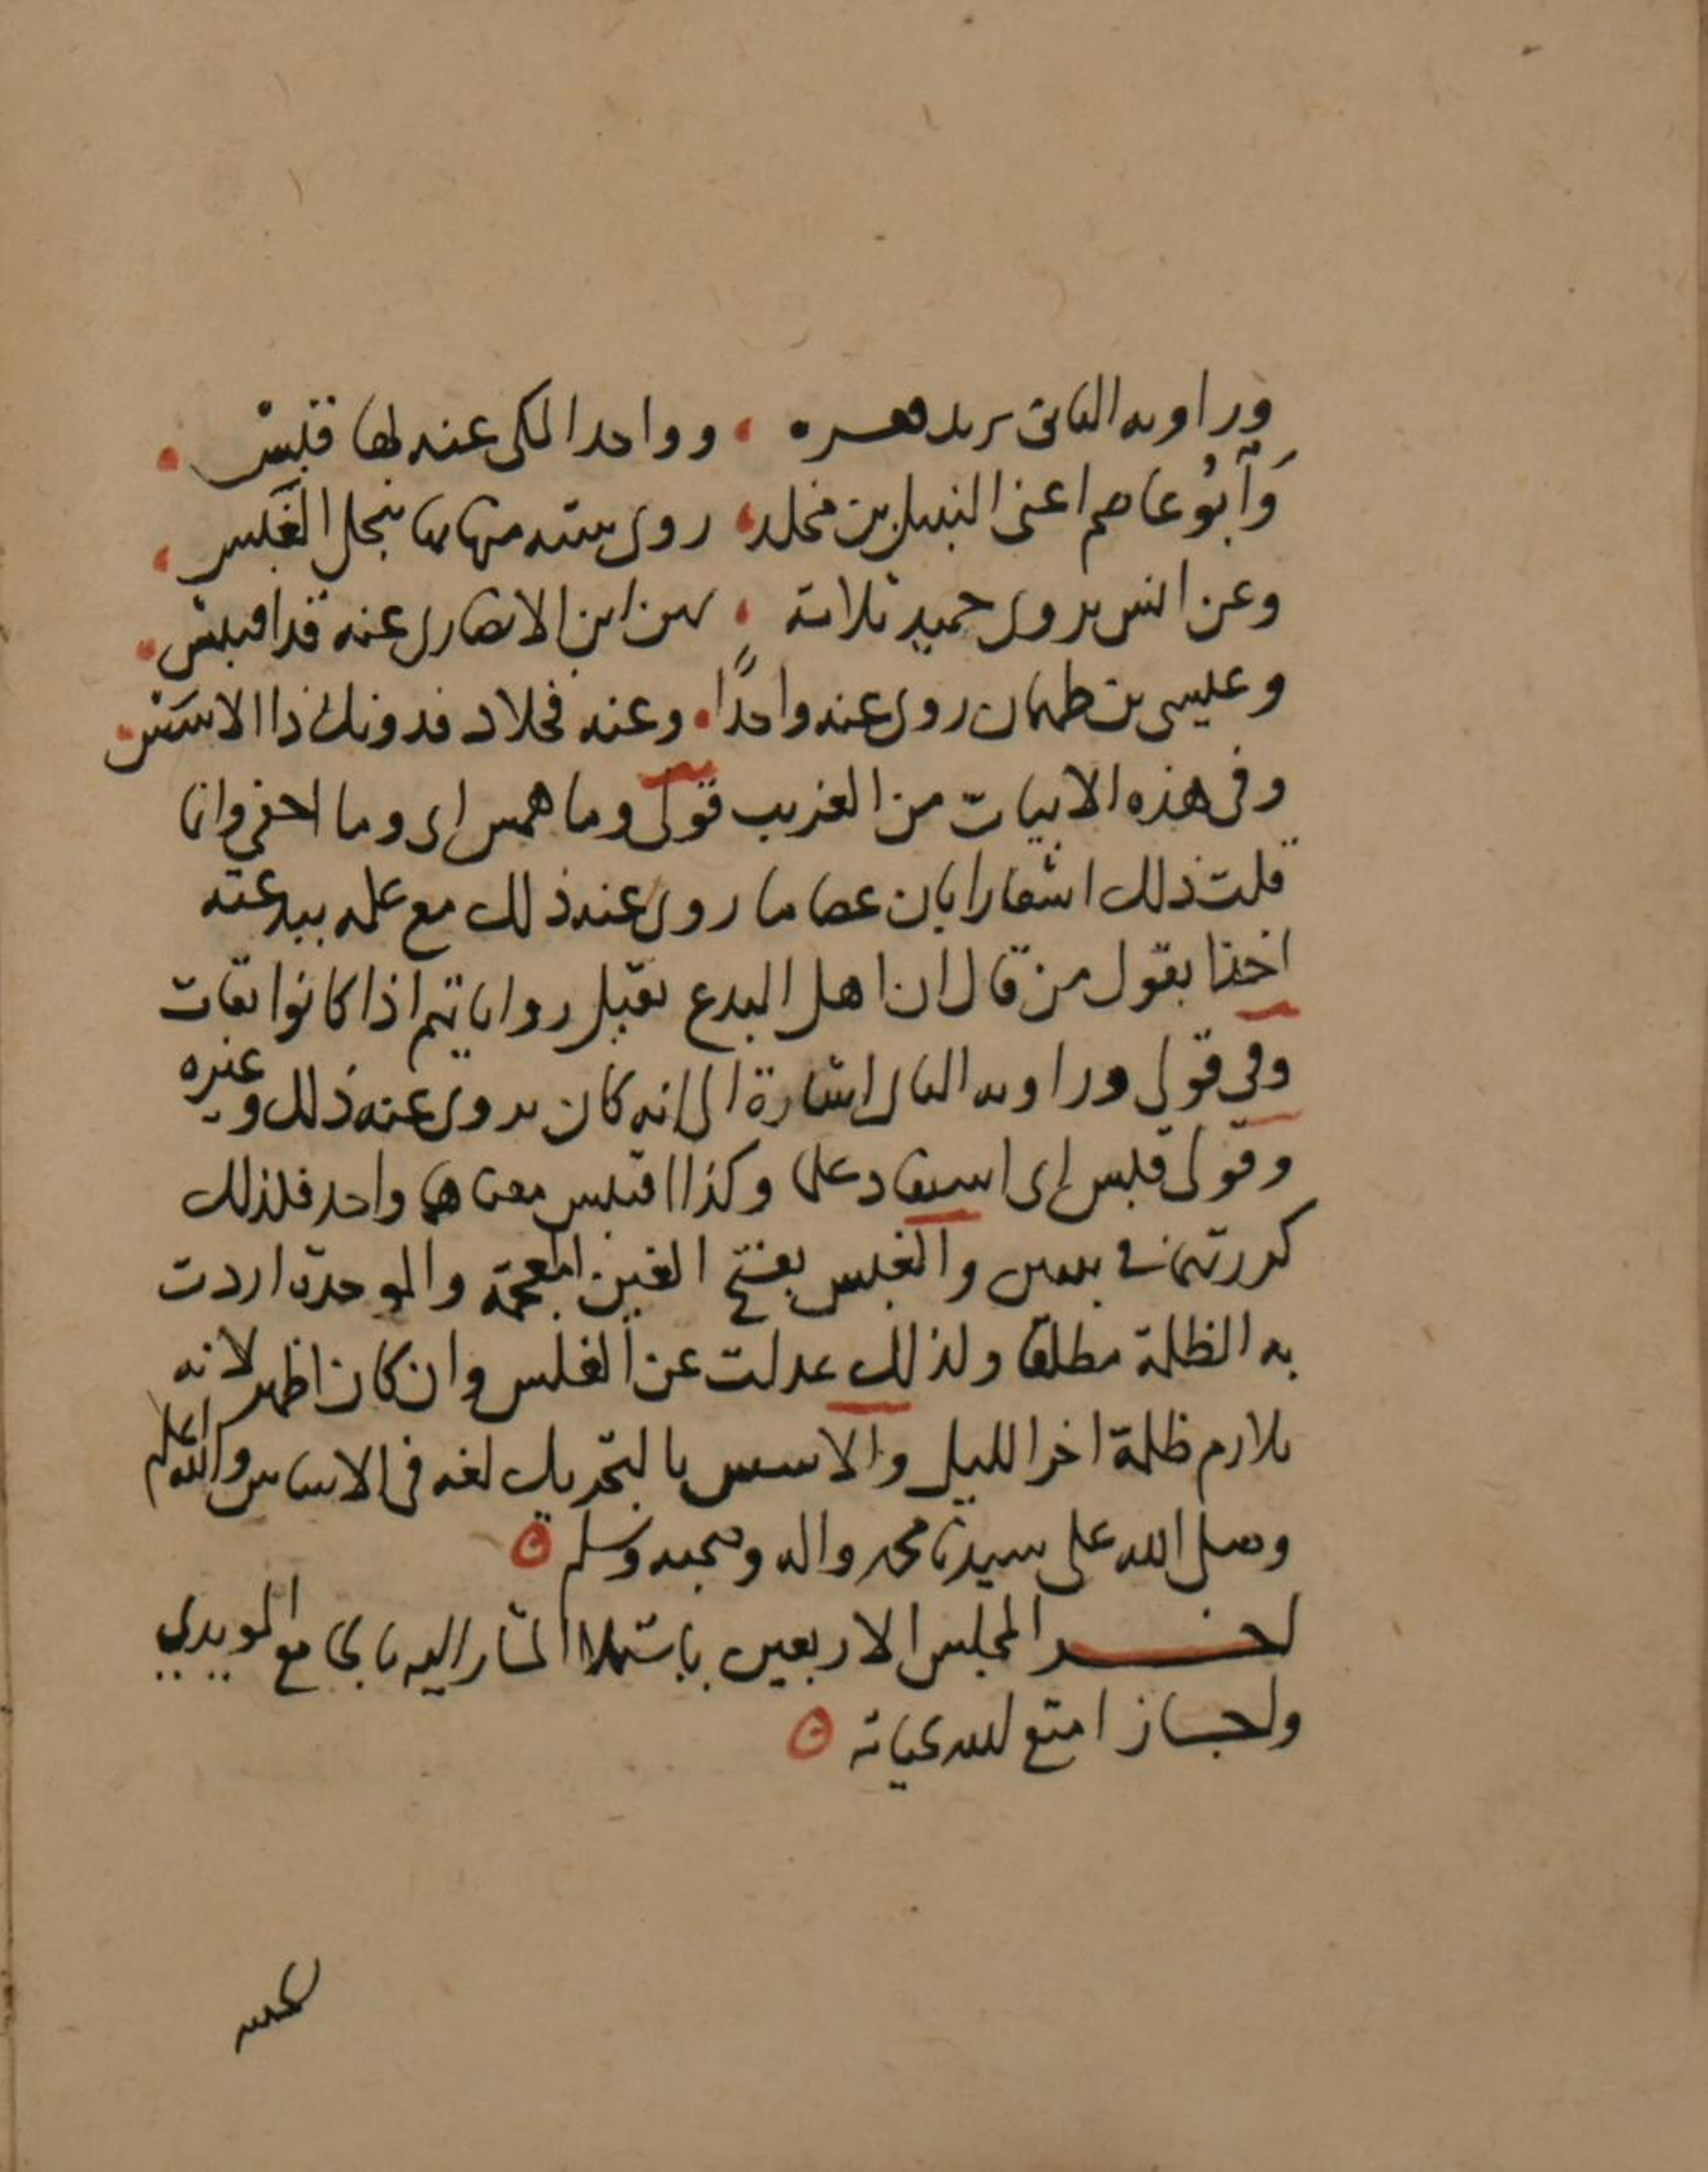 وراويه الثاني يزيد ، وواحدا المكي عنه لها قبس .
وَأبُو عاصم اعنى النبيل بن مخلد ، روى ستة منها بها ينجل الغَبس ،
وعن انس يروى حميد ثلاثة ، لهن ابن الانصارى عنه قد اقبس .
وعيسى بن طهمان روى عنه واحدًا . وعنه فخلاد فدونك ذا الاسَس .
وفى هذه الابيات من الغريب قولى وما همس اى وما اخفى وانما
قلت ذلك اشعارا بان عصاما روى عنه ذلك مع علمه ببدعته
اخذا بقول من قال ان اهل البدع تقبل رواياتهم اذا كانوا ثقات
وفى قولى وراويه الثانى اشارة الى انه كان يروى عنه ذلك وغيره
وقولى قبس اى استفاد علما وكذا اقتبس معناهما واحد فلذلك
كررتهما فى بيتين والغبس بفتح الغين المعجمة والموحدة اردت
به الظلمة مطلقا ولذلك عدلت عن الغلس وان كان اظهر لانه
يلازم ظلمة اخر الليل والاسس بالتحريك لغة فى الاساس والله اعلم
وصلى الله على سيدنا محمد واله وصحبه وسلم
اخر المجلس الاربعين باستملا المشار اليه بالجامع المويدي
واجاز امتع الله بحياته